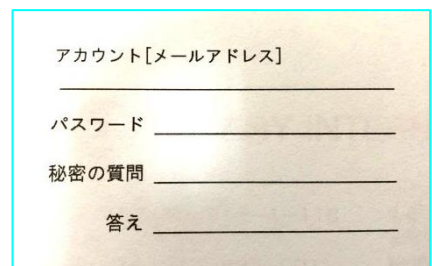 アカウント[メールアドレス]
パスワード
秘密の質問
答え